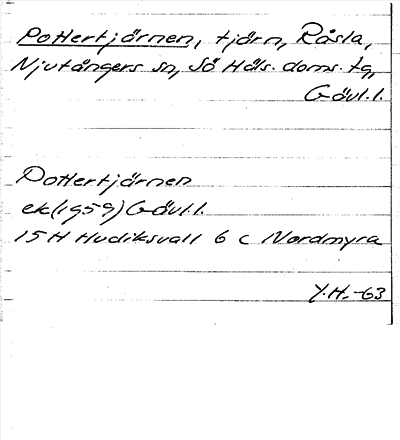 Pottertjärnen, tjärn, Råsla,
Njutångers sn, Sö Häls. doms. tg,
Gävl.l.
Dottertjärnen
ek(1959) Gävl.l.
15H Hudiksvall 6 c Nordmyra
Y.H.-63